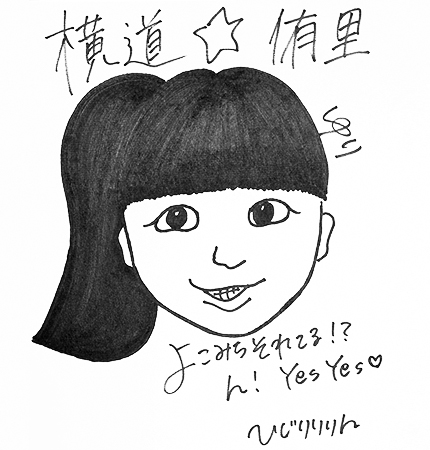 横道☆侑里
ゆり
よこみちそれてる!?
ん! Yes Yes♡
ひじりりりん